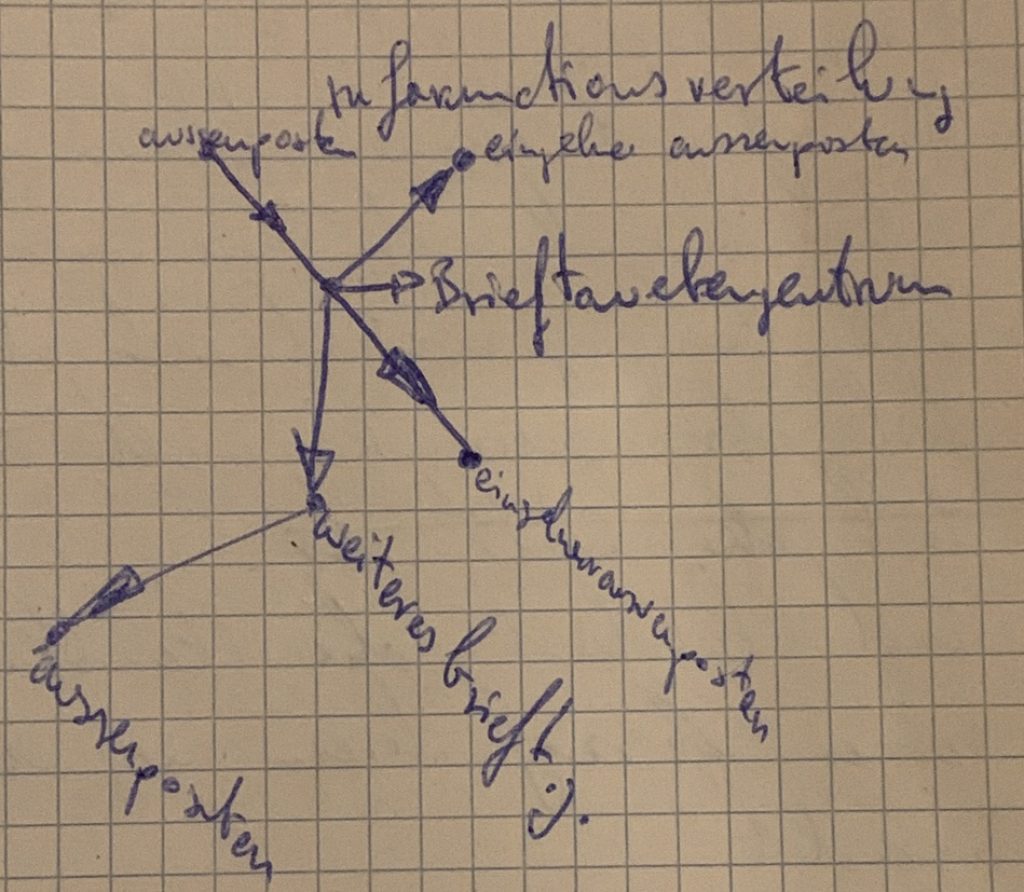 Informationsverteilung
aussenposten
einzelne aussenposten
Brieftaubenzentrum
einzelner aussenposten
weiteres brieft
aussenposten